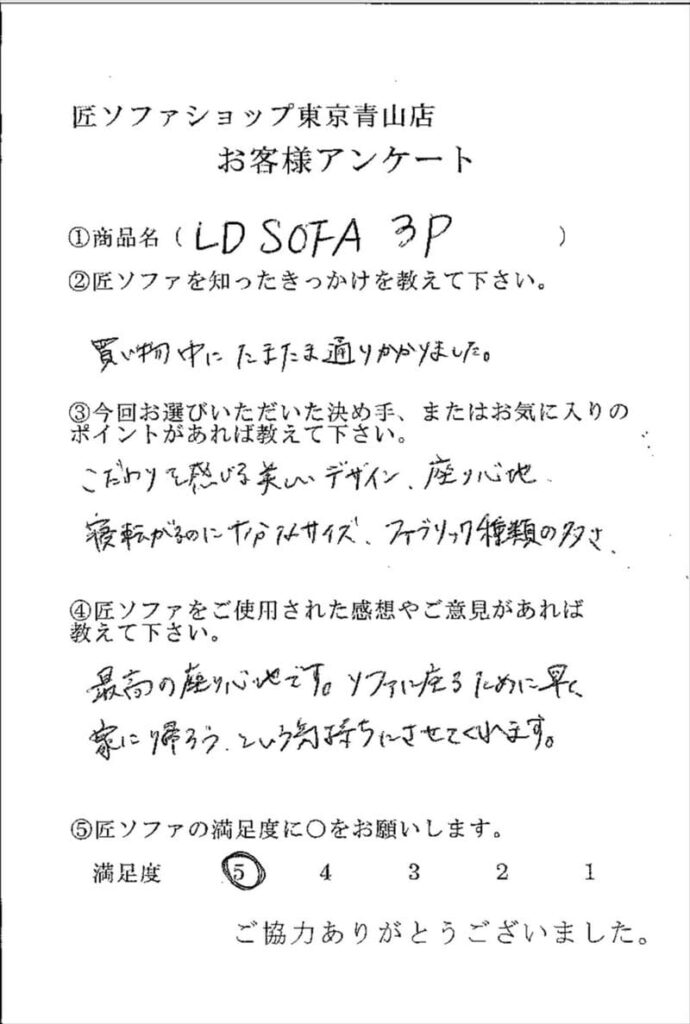 匠ソファショップ東京青山店
お客様アンケート
①商品名（ LD SOFA 3P ）
②匠ソファを知ったきっかけを教えて下さい。
買い物中にたまたま通りかかりました。
③今回お選びいただいた決め手、またはお気に入りの
ポイントがあれば教えて下さい。
こだわりを感じる美しいデザイン、座り心地、
寝転がるのに十分なサイズ、ファブリック種類の多さ、
④匠ソファをご使用された感想やご意見があれば
教えて下さい。
最高の座り心地です。ソファに座るために早く
家に帰ろう、という気持ちにさせてくれます。
⑤匠ソファの満足度に○をお願いします。
満足度 5 4 3 2 1
ご協力ありがとうございました。